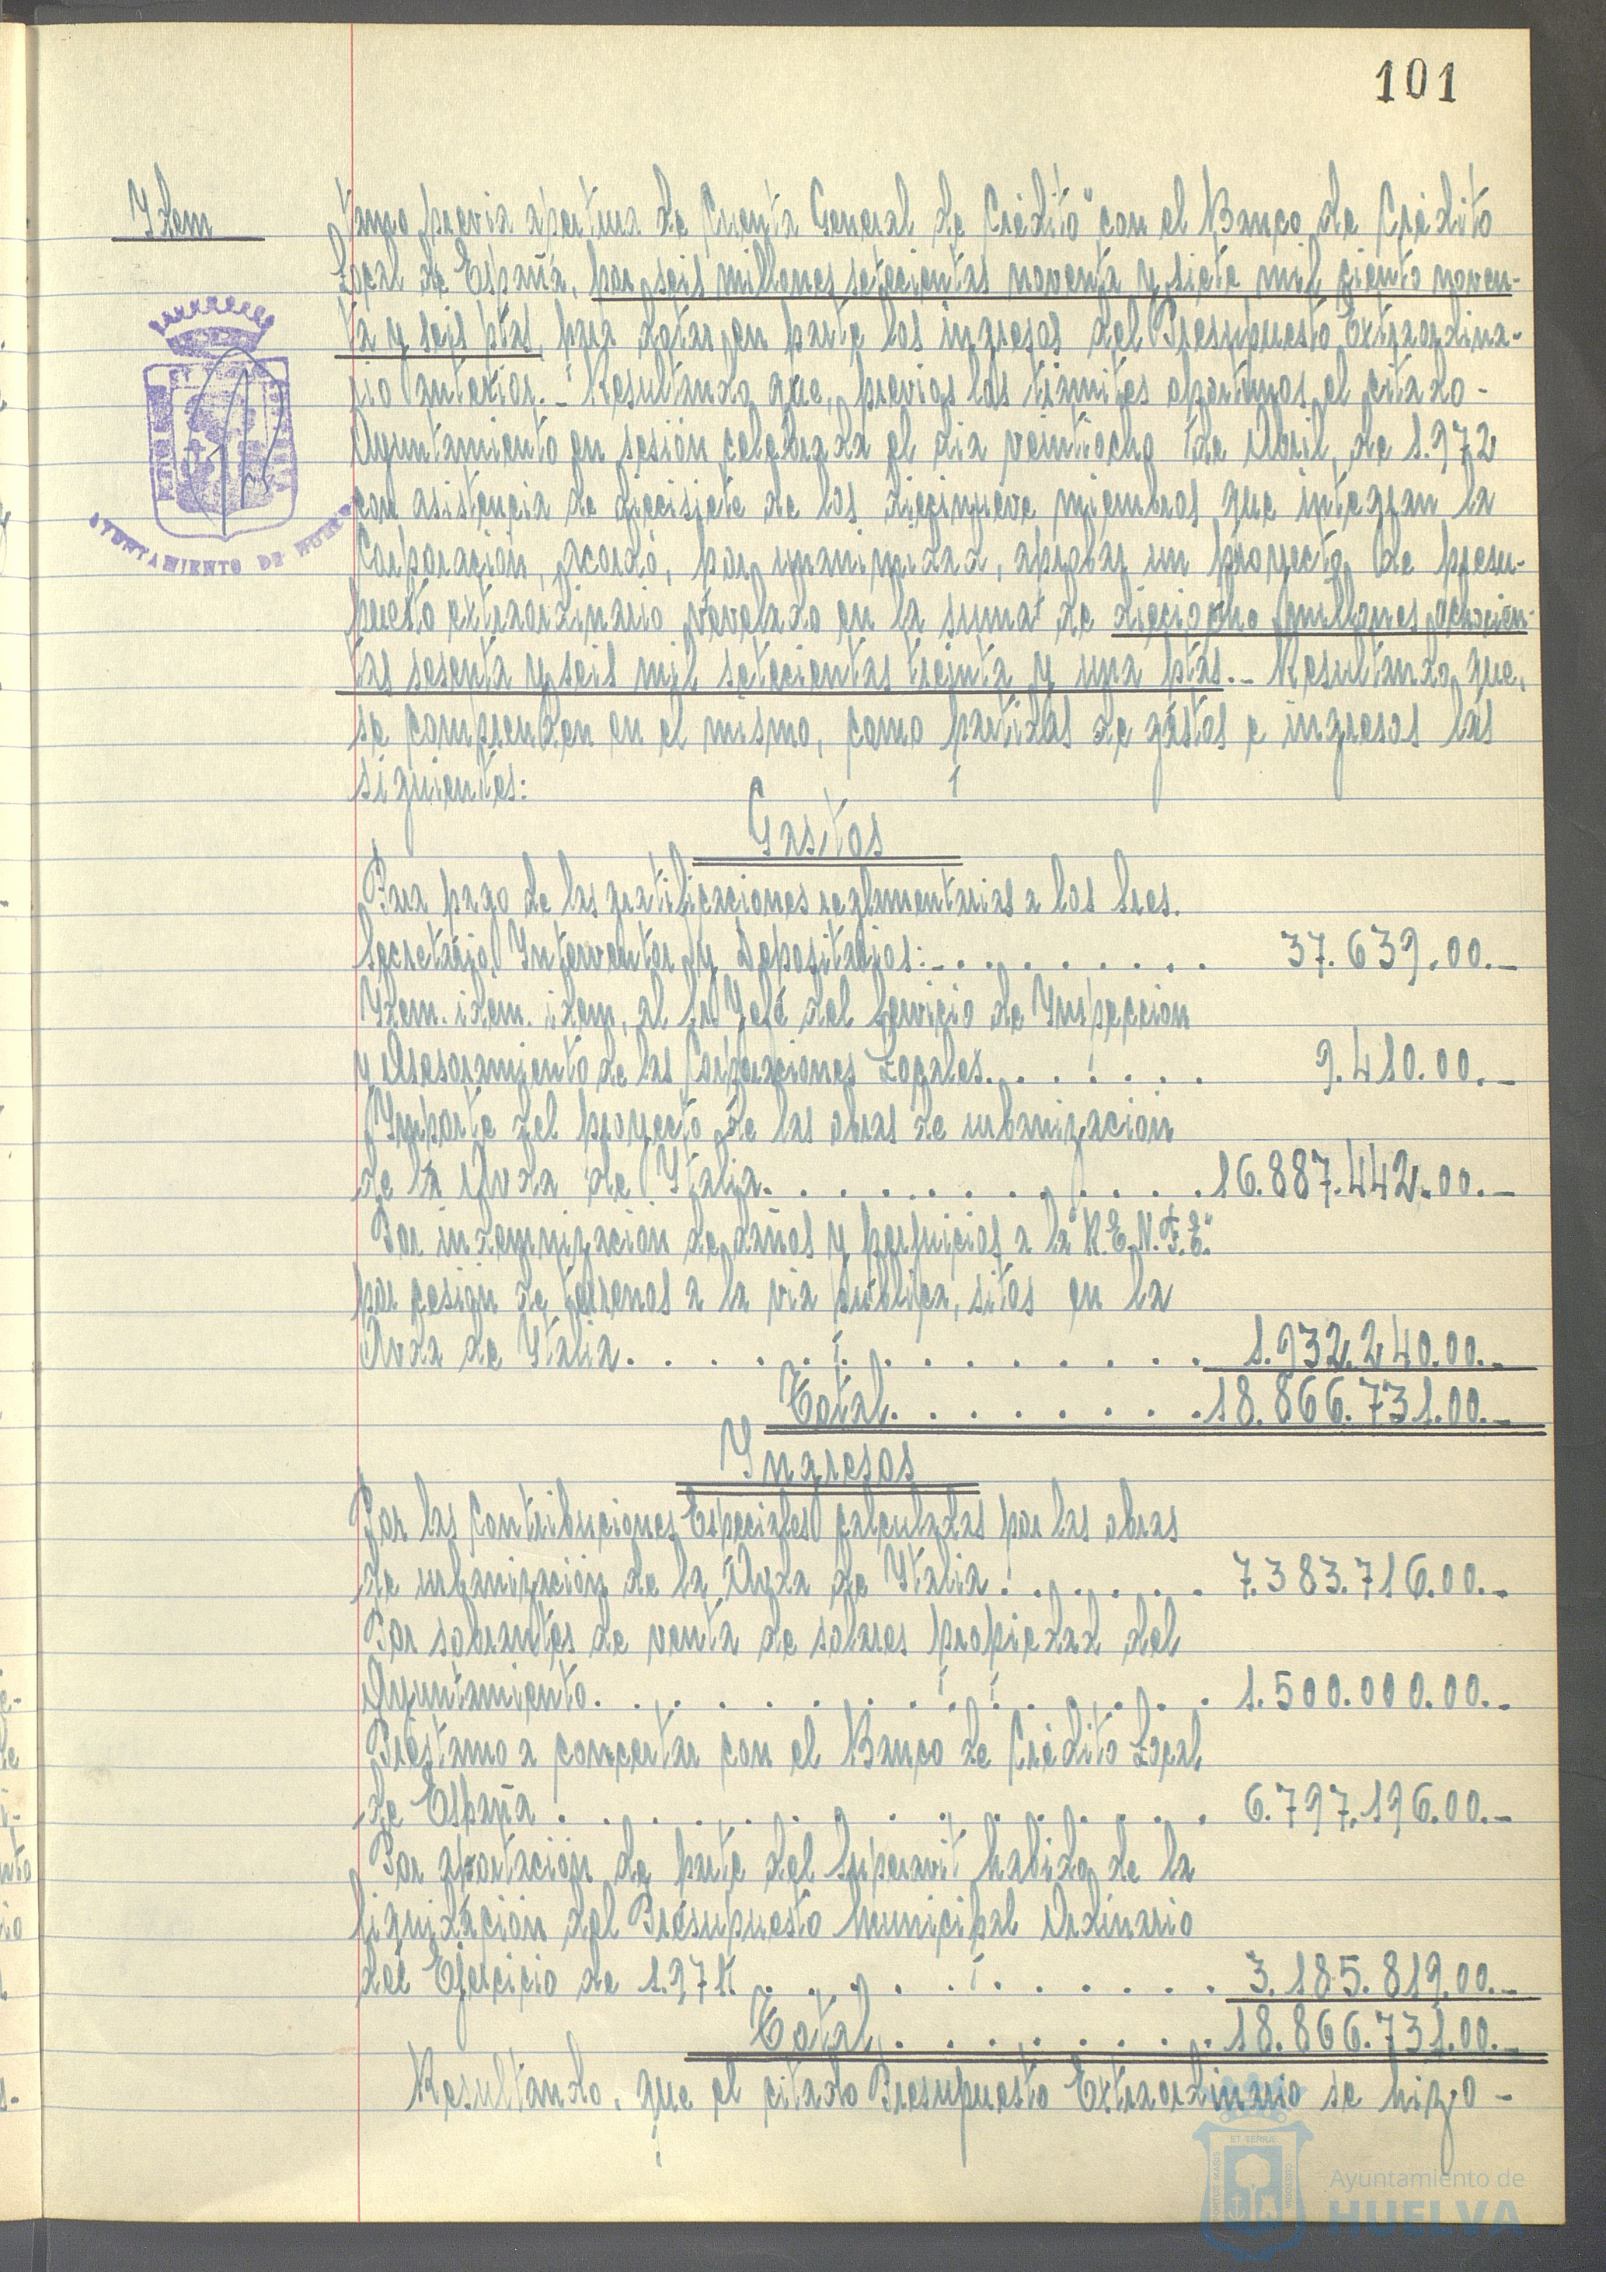 101
Idem
tamo previa apertura de Cuenta General de Crédito" con el Banco de Crédito
Local de España, por seis millones setecientas noventa y siete mil ciento noven-
ta y seis ptas, para dotar en parte los ingresos del Presupuesto Extraordina-
rio anterior.- Resultando que, previos los trámites oportunos el citado -
Ayuntamiento en sesión celebrada el dia veintiocho de Abril, de 1.972
con asistencia de diecisiete de los diecinueve miembros que integran la
Corporación, acordó, por unanimidad, aprobar un proyecto de presu-
puesto extraordinario nivelado en la suma de dieciocho millones ochocien-
tas sesenta y seis mil setecientas treinta y una ptas.- Resultando que,
se comprenden en el mismo, como partidas de gastos e ingresos las
siguientes:
Gastos
Para pago de las gratificaciones reglamentarias a los Sres.
Secretario, Interventor y Depositarios:-......... 37.639.00.-
Idem. idem. idem, al Sr Jefe del Servicio de Inspección
y Asesoramiento de las Corporaciones Locales....... 9.410.00.-
Importe del proyecto de las obras de urbanización
de la Avda de Italia............ 16.887.442.00.-
Por indemnización de daños y perjuicios a la "R.E.N.F.E."
por cesión de terrenos a la via pública, sitos en la
Avda de Italia............... 1.932.240.00.-
Total........ 18.866.731.00.-
Ingresos
Por las Contribuciones Especiales calculadas por las obras
de urbanización de la Avda de Italia....... 7.383.716.00.-
Por sobrantes de venta de solares propiedad del
Ayuntamiento............... 1.500.000.00.-
Préstamo a concertar con el Banco de Crédito Local
de España................ 6.797.196.00.-
Por aportación de parte del Superavit habido de la
liquidación del Presupuesto Municipal Ordinario
del Ejercicio de 1.971............ 3.185.819.00.-
Total......... 18.866.731.00.-
Resultando, que el citado Presupuesto Extraordinario se hizo -
AYUNTAMIENTO DE HUELVA
Ayuntamiento de
HUELVA